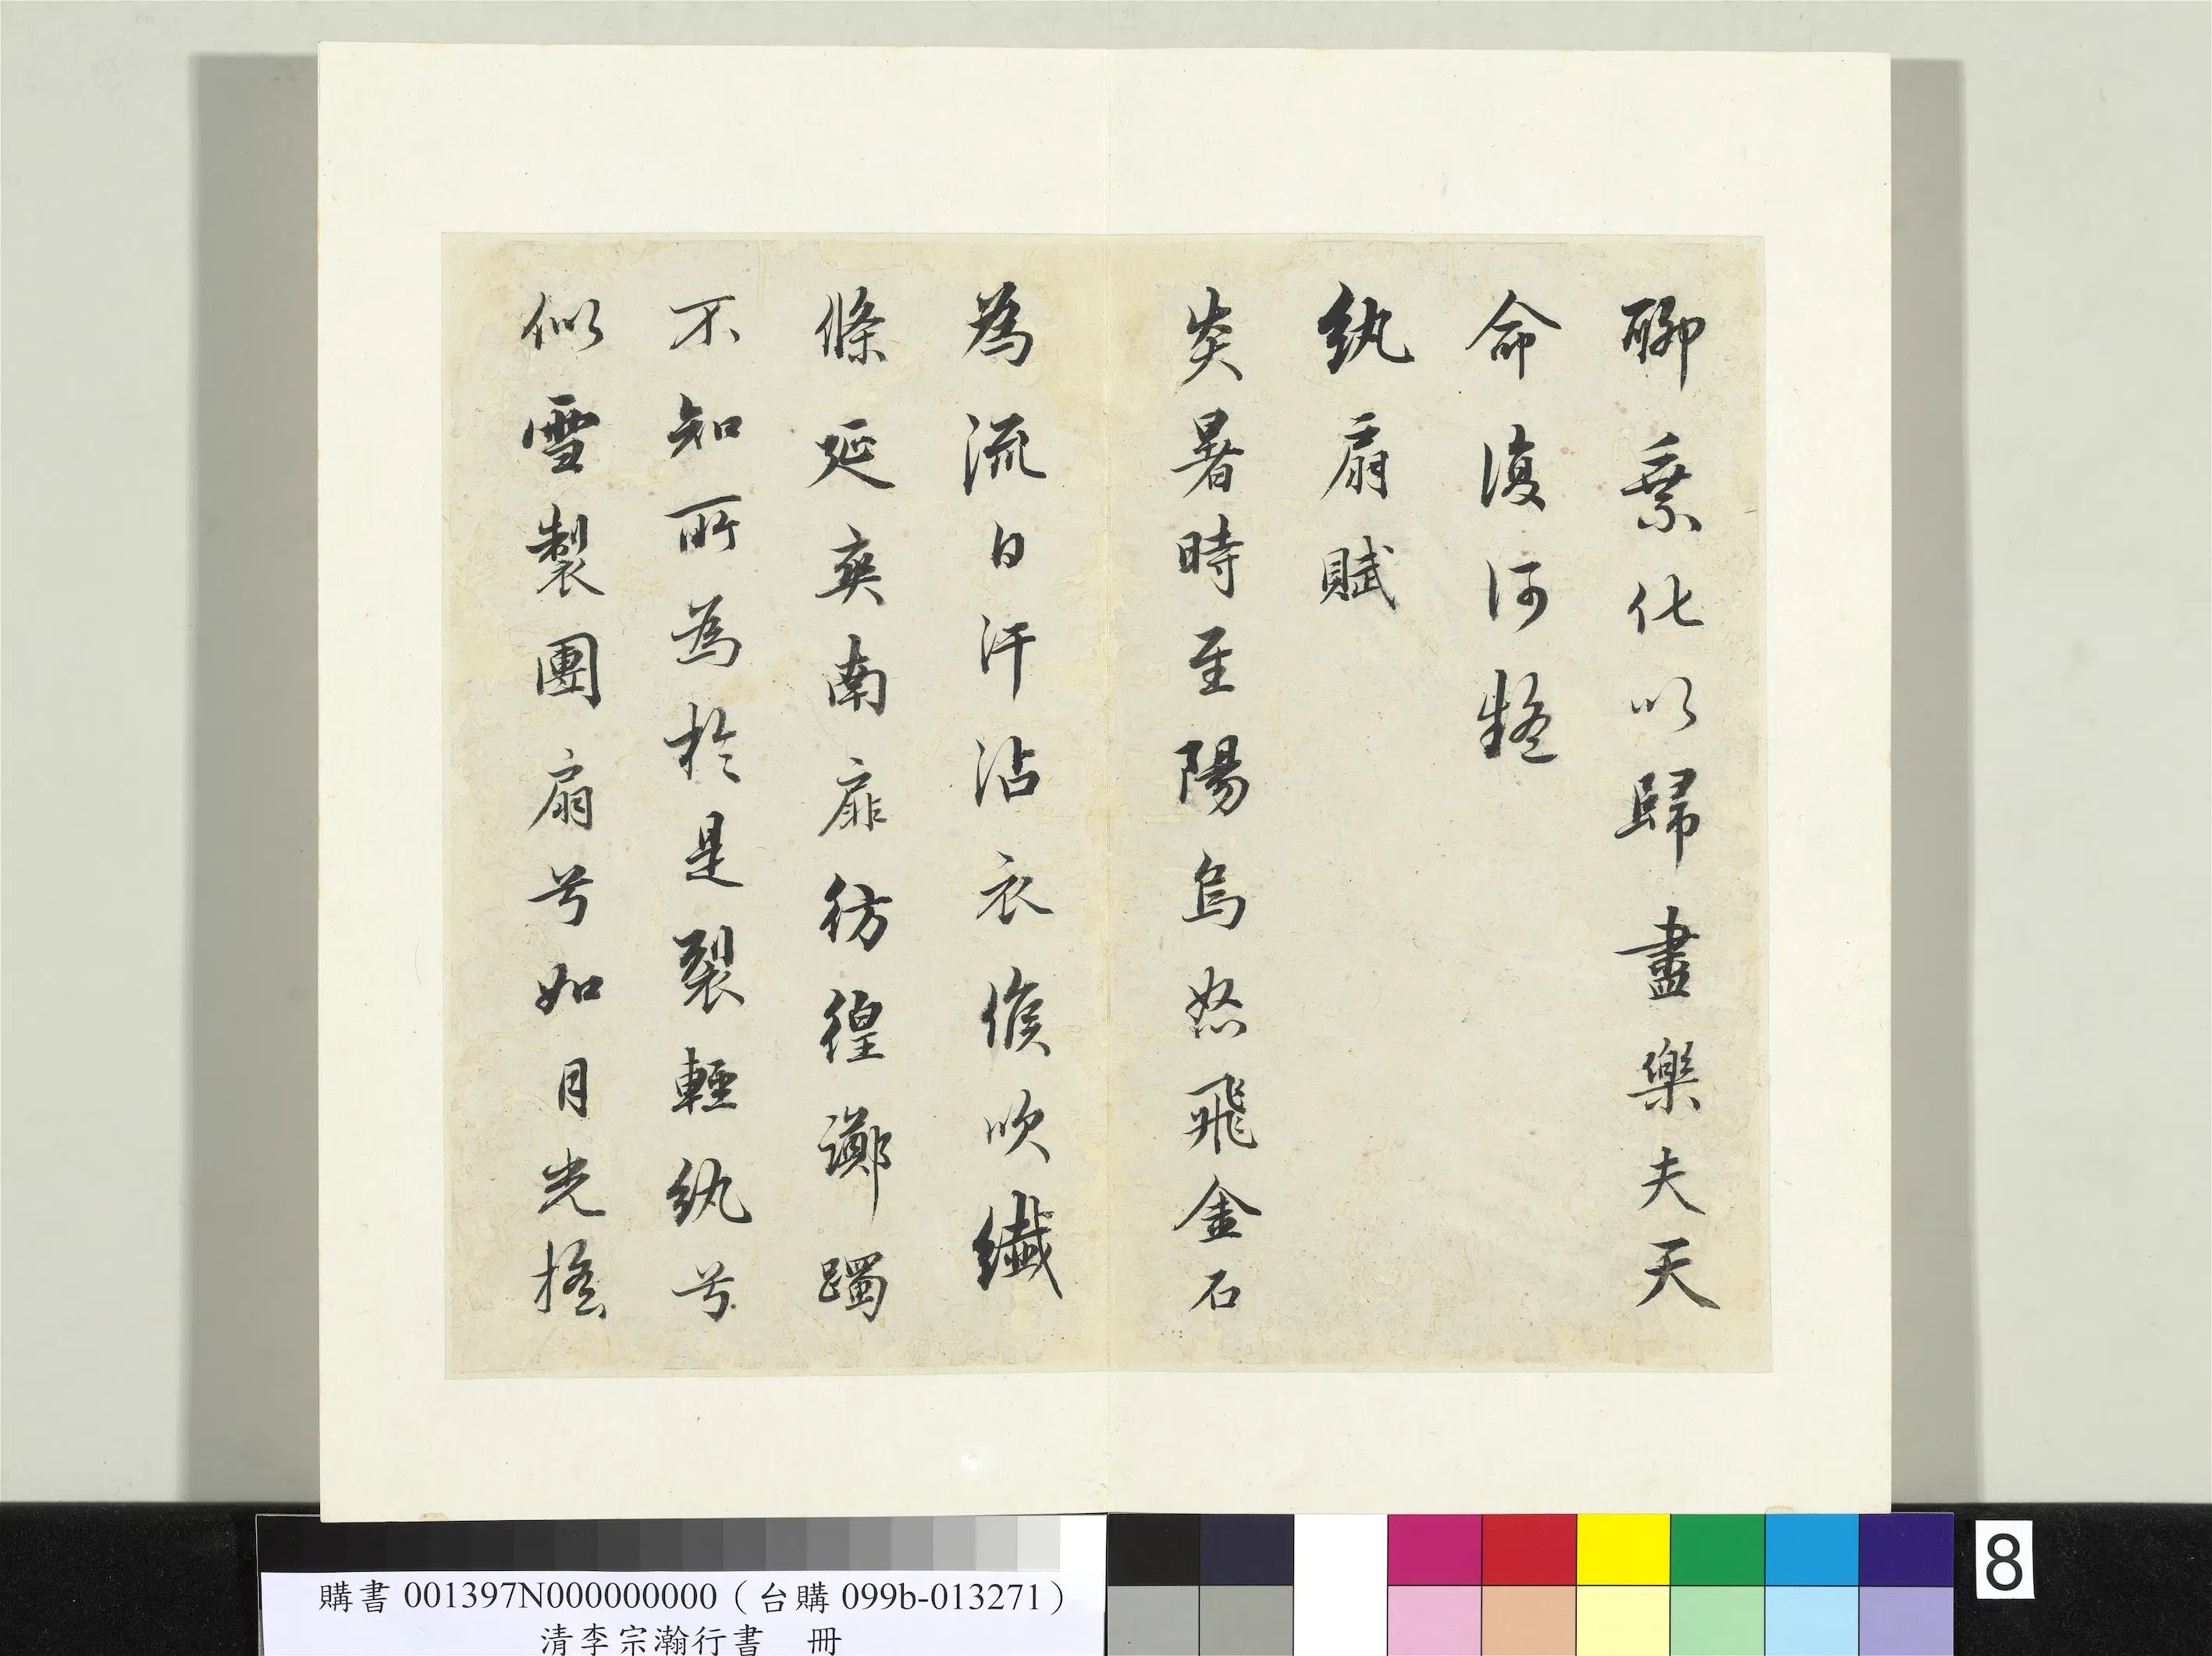 聊乘化以歸盡樂夫天
命復何疑
紈扇賦
炎暑時至陽烏怒飛金石
為流白汗沾衣倏吹纖
條延爽南扉彷徨躑躅
不知所為於是裂輕紈兮
似雪製團扇兮如月光搖
購書 001397N000000000（台購 099b-013271）
清李宗瀚行書　冊
8